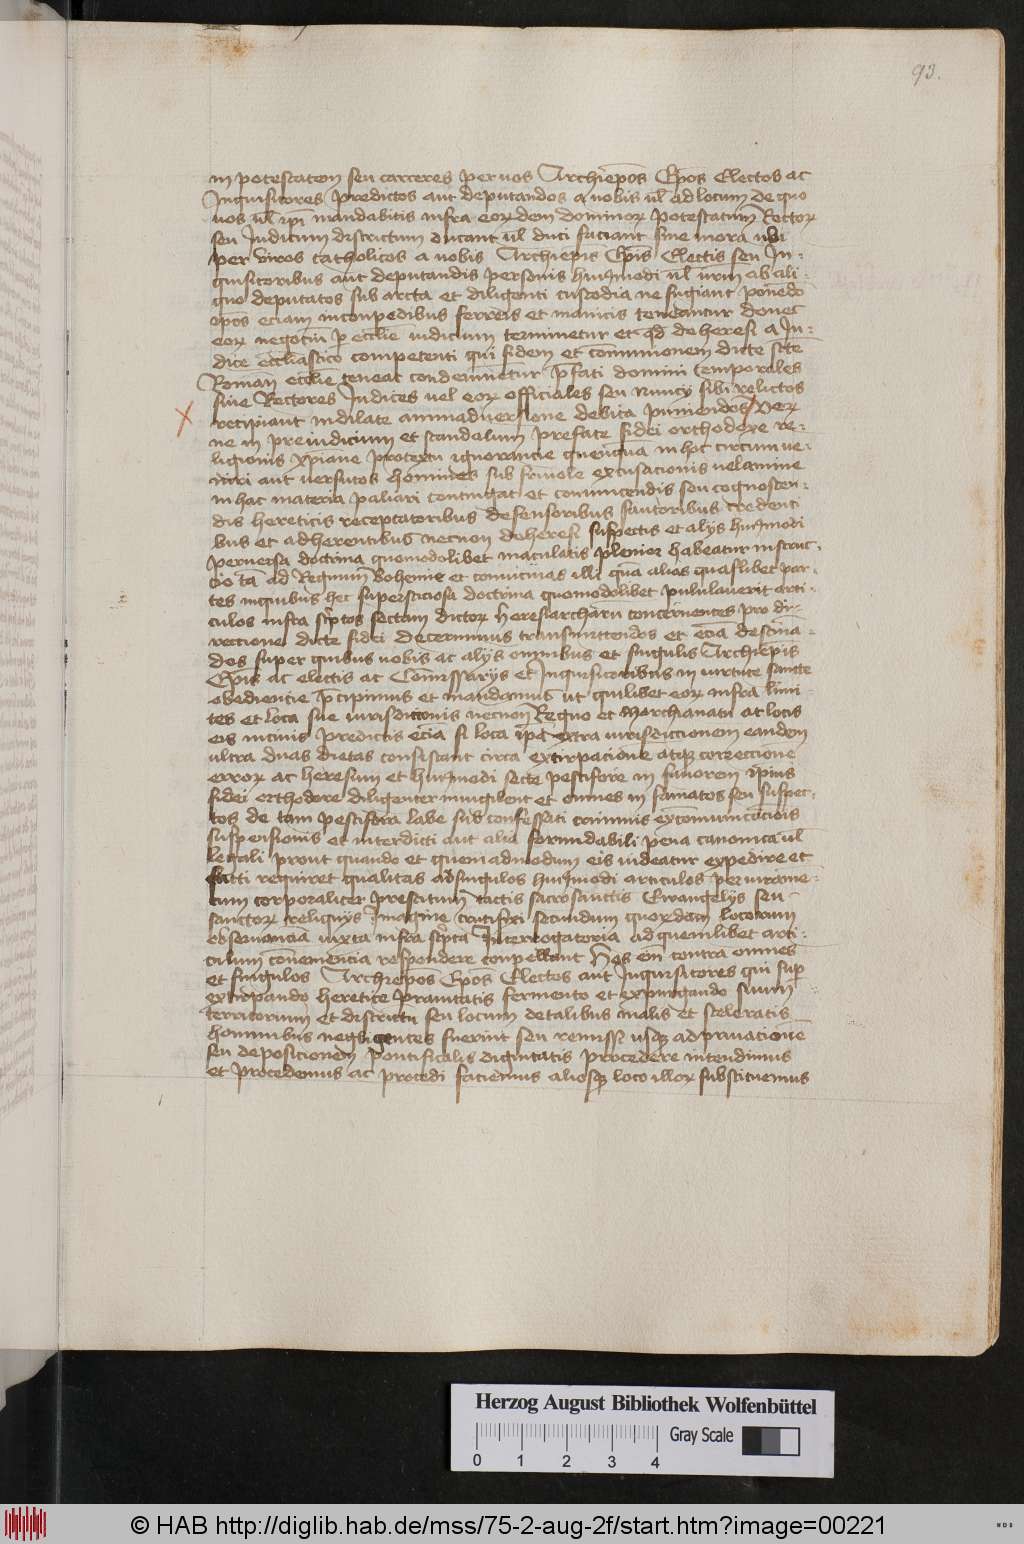 93.
in potestatem seu carceres per vos Archiep̄os Ep̄os Electos ac
Inquisitores predictos aut deputandos a vobis ul̄ ad locum de quo
vos ul̄ ip̄i mandabitis infra eorꝝdem dominorꝝ potestatum Rectorꝝ
seu Iudicum districtum ducant ul̄ duci faciant sine mora ubi
per viros catholicos a vobis Archiep̄is Ep̄is Electis seu In-
quisitoribus aut deputandis personis huiꝰmodi ul̄ vr̄m ab ali-
quo deputatos sub arcta et diligenti custodia ne fugiant ponēdo
eos eciam in conpedibus ferreis et manicis teneantur donec
eorꝝ negotiū ꝑ eccl̄ie iudicium terminetur et qd̄ de heresi a Iu-
dice eccl̄iastico competenti qui fidem et com̄unionem dicte sct̄e
Roman̄ eccl̄ie teneat condemnētur p̄fati domini temporales
siue Rectores Iudices vel eorꝝ officiales seu nuncy sibi relictos
recipiant indilate animaduersione debita puniendos Verꝝ
ne in preiudicium et scandalum prefate fidei orthodoxe re-
ligionis xp̄iane pretextu ignorancie quenqua in hoc circumue-
niri aut versutos homines sub friuole excusacionis velamine
in hac materia paliari contingat et conuincendis seu cognoscen-
dis hereticis receptatoribus defensoribus fautoribus credenti
bus et adherentibus necnon de heresi suspectis et alijs huiꝰmodi
peruersa doctrina quomodolibet maculatis plenior habeatur instruc-
cio tā ad Regnum Bohemie et conuicinas illi quā alias quaslibet par-
tes in quibus hec supersticiosa doctrina quomodolibet pululauerit arti-
culos infra scp̄tos sectam dictorꝝ heresiarcharū concernentes pro di-
rectione dicte fidei decernimus transmittendos et eciā destina-
dos super quibus vobis ac alys omnibus et singulis Archiep̄is
Ep̄is ac electis ac Com̄issarys et Inquisitoribus in virtute sancte
obediencie p̄cipimus et mandamus ut quilibet eorꝝ infra limi-
tes et loca sue iurisdictionis necnon Regno et Marchianatu ac locis
eis vicinis predictis eciā si loca ip̄a extra iurisdictionem eandem
ultra duas dietas consistant circa extirpacione atqꝫ correccione
errorꝝ ac heresum et huiꝰmodi secte pestifere in fauorem ip̄ius
fidei orthodoxe diligenter inuigilent et omnes in famatos seu suspec-
tos de tam pestifera labe sub confessati criminis excom̄unicac̄ionis
suspensionis et interdicti aut alia formidabili pena canonica ul̄
legali prout quando et quemadmodum eis videatur expedire et
facti requiret qualitas ad singulos huiꝰmodi articulos per iurame-
tum corporaliter prestitum tactis sacrosanctis Ewangelys seu
sanctorꝝ reliquys Imagine crucifixi secundum quorꝝdam locorum
observanciā iuxta infra scp̄ta Interrogatoria ad quemlibet arti-
culum conueniencia respondere conpellant Nos em̄ contra omnes
et singulos Archiep̄os Ep̄os Electos aut Inquisitores qui sup̄
extirpando heretice prauitatis fermento et expurgando suum
territorium et districtū seu locum de talibus malis et sceleratis
hominibus negligentes fuerint seu remissi usqꝫ ad priuacione
seu depositionem pontificalis dignitatis procedere intendimus
et procedemus ac procedi faciemus aliosqꝫ loco illorꝝ substituemus
Herzog August Bibliothek Wolfenbüttel
Gray Scale
0 1 2 3 4
© HAB http://diglib.hab.de/mss/75-2-aug-2f/start.htm?image=00221